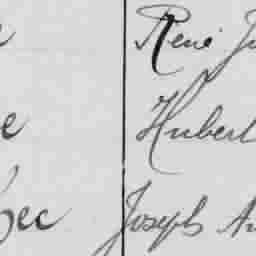 René
e Hubert
bec Joseph